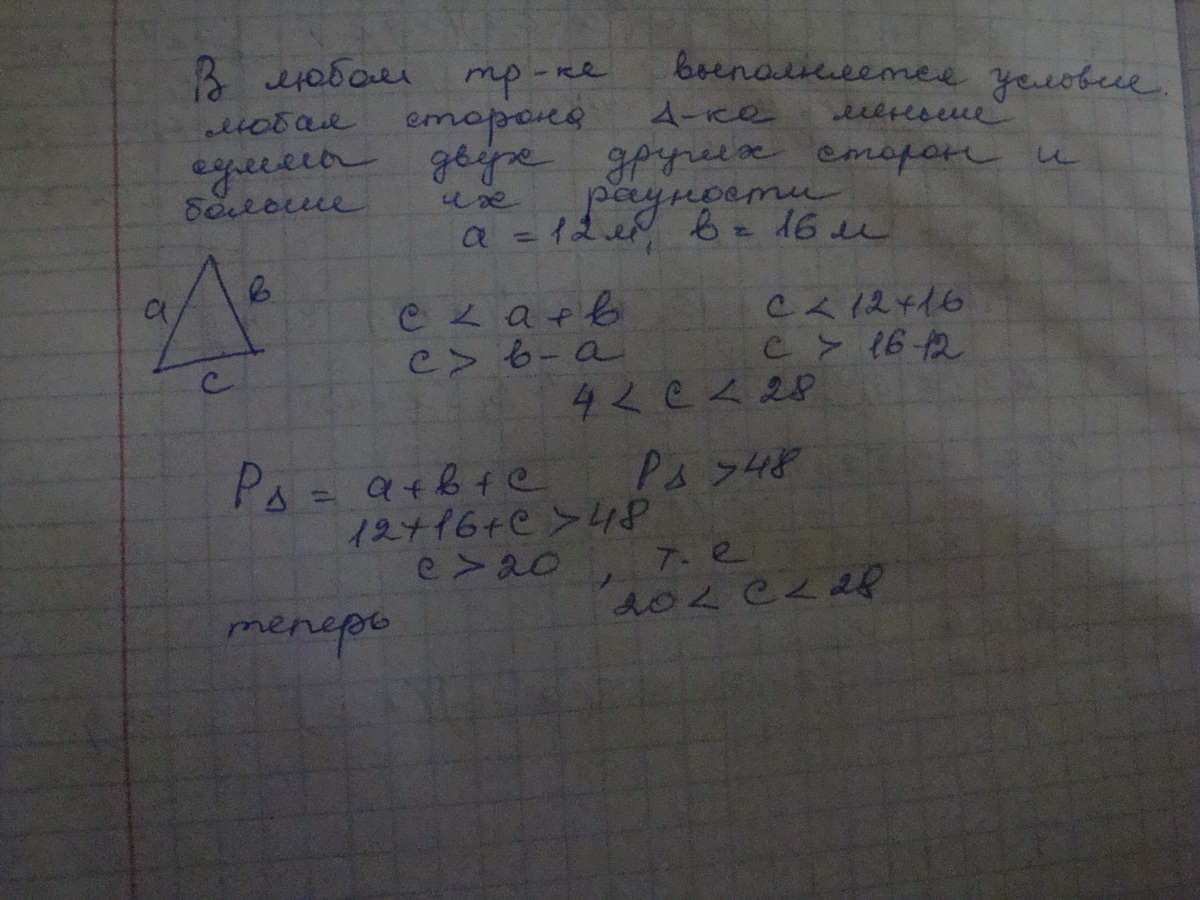 В любом тр-ке выполняется условие.
любая сторона Δ-ка меньше
суммы двух других сторон и
больше их разности
a = 12м, в = 16м
a в
c < a + в c < 12+16
c > в - a c > 16-12
c
4 < c < 28
PΔ = a+в+c PΔ >48
12+16+c >48
c >20 , т. е
теперь 20< c < 28